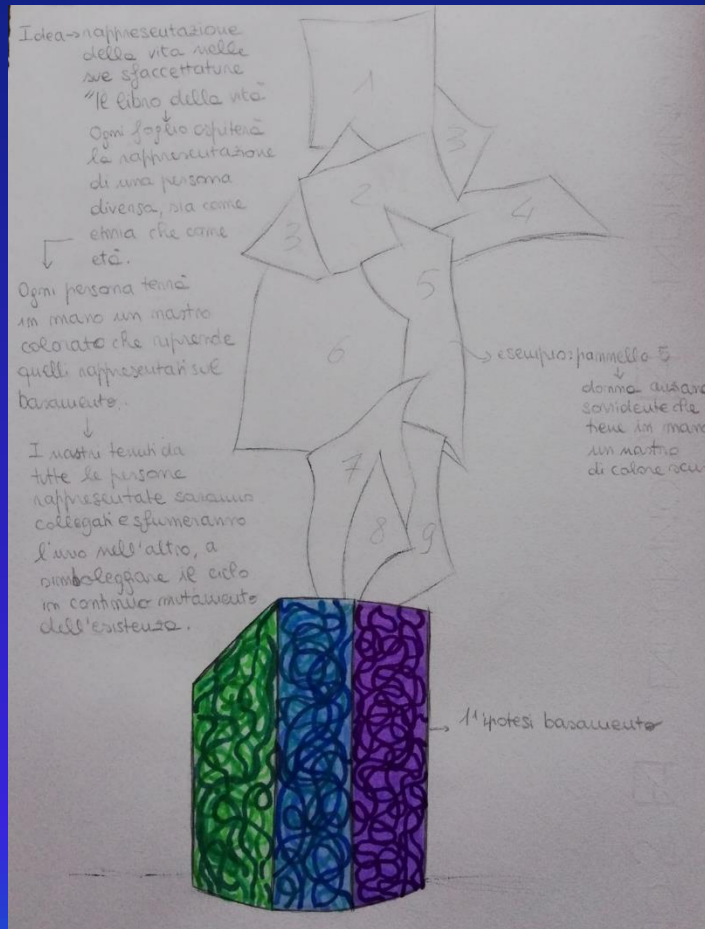 Idea → rappresentazione
della vita nelle
sue sfaccettature
"Il libro della vita
↓
Ogni foglio ospiterà
la rappresentazione
di una persona
diversa, sia come
etnia che come
età.
Ogni persona terrà
in mano un nastro
colorato che riprende
quelli rappresentati sul
basamento.
↓
I nastri tenuti da
tutte le persone
rappresentate saranno
collegati e sfumeranno
l'uno nell'altro, a
simboleggiare il ciclo
in continuo mutamento
dell'esistenza.
1
3
2
3
4
5
6
7
8
9
→ esempio: pannello 5
↓
donna
sorridente che
tiene in mano
un nastro
di colore
→ 1ª ipotesi basamento